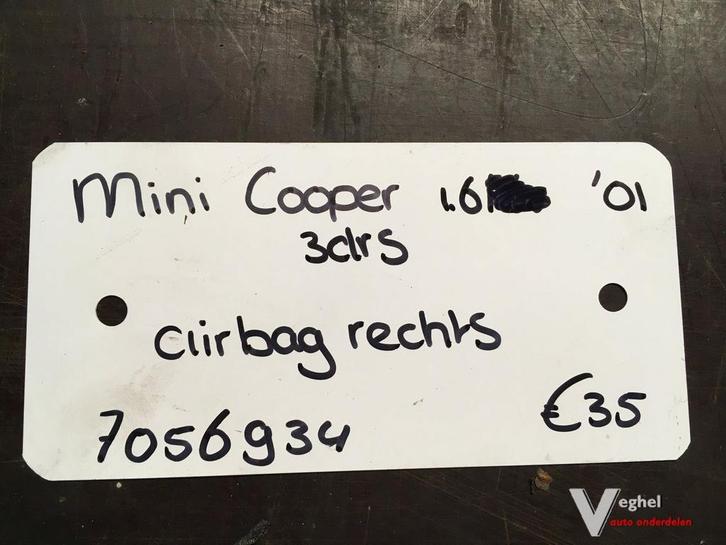 Mini Cooper 1.6 '01
3drs
airbag rechts
€35
7056934
Veghel
auto onderdelen